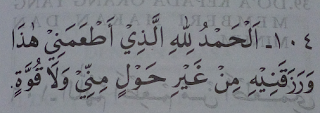 ١٠٤- اَلْحَمْدُ لِلّٰهِ الَّذِيْ اَطْعَمَنِيْ هٰذَا
وَرَزَقَنِيْهِ مِنْ غَيْرِ حَوْلٍ مِنِّيْ وَلَا قُوَّةٍ.